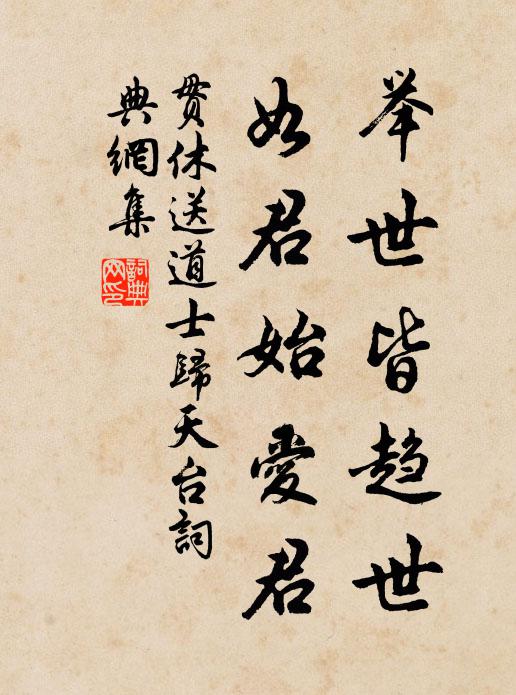 举世皆趋世
如君始愛君
贯休送道士歸天台詞
典網集
詞典网印